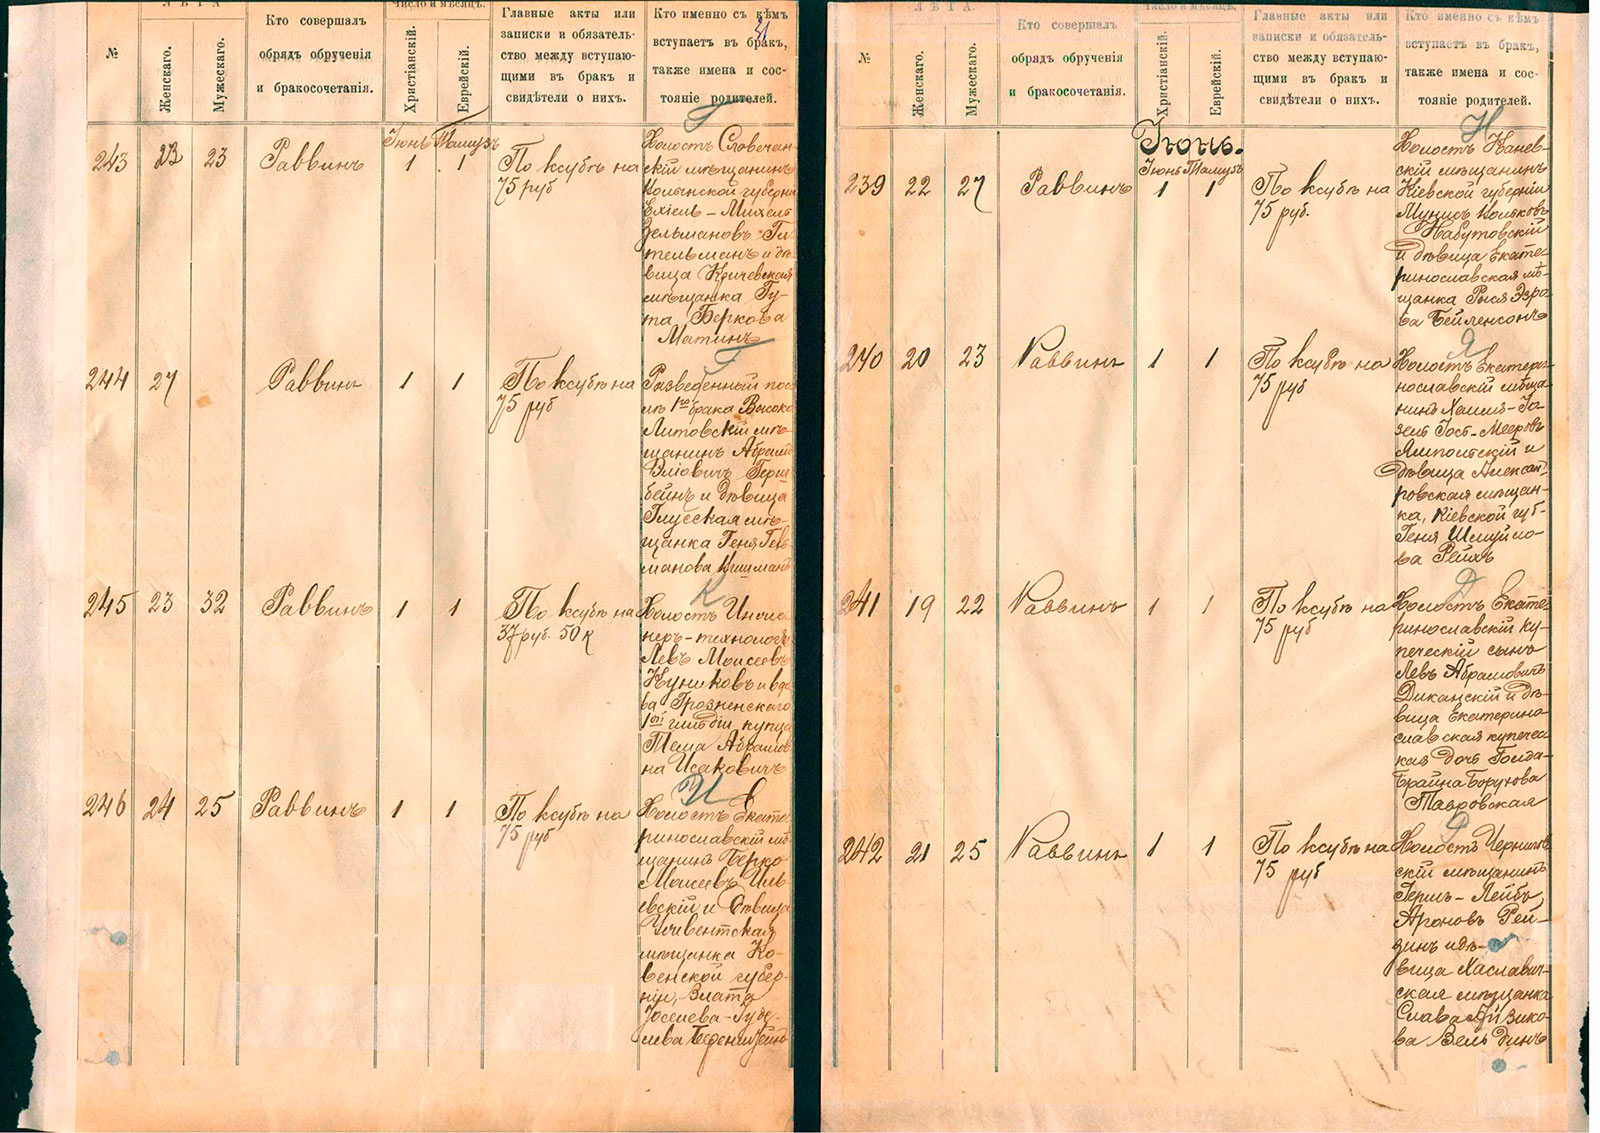 №
ЛѢТА
Женскаго.
Мужескаго.
Кто совершалъ
обрядъ обрученія
и бракосочетанія.
Число и мѣсяцъ.
Христіанскій.
Еврейскій.
Главные акты или
записки и обязатель-
ство между вступаю-
щими въ бракъ и
свидѣтели о нихъ.
Кто именно съ кѣмъ
вступаетъ въ бракъ,
также имена и сос-
тояніе родителей.
Іюнь Тамузъ
243 23 23 Раввинъ 1 1 По ксубѣ на
75 руб
Г
Холостъ Словечан-
скій мѣщанинъ
Волынской губерніи
Ехіель-Михель
Зельмановъ Ги-
тельманъ и дѣ-
вица Кричевская
мѣщанка Гу-
та Беркова
Матинъ
244 27 Раввинъ 1 1 По ксубѣ на
75 руб
Г
Разведенный пос-
лѣ 1го брака Высоко
Литовскій мѣ-
щанинъ Абрамъ
Эліовичъ Герш-
бейнъ и дѣвица
Глусская мѣ-
щанка Геня Гер-
манова
245 23 32 Раввинъ 1 1 По ксубѣ на
37 руб. 50 к
К
Холостъ Инже-
неръ-технологъ
Левъ Моисеевъ
Куниковъ и вдо-
ва Грозненскаго
1ой гильдіи купца
Тема Абрамов-
на Исаковичъ
246 24 25 Раввинъ 1 1 По ксубѣ на
75 руб
И
Холостъ Екате-
ринославскій мѣ-
щанинъ Берко
Моисеевъ Иль-
евскій и дѣвица
мѣщанка Ко-
венской губер-
ніи, Злата
Іоселева-Гуде-
лева
№
ЛѢТА.
Женскаго.
Мужескаго.
Кто совершалъ
обрядъ обрученія
и бракосочетанія.
Число и мѣсяцъ.
Христіанскій.
Еврейскій.
Главные акты или
записки и обязатель-
ство между вступаю-
щими въ бракъ и
свидѣтели о нихъ.
Кто именно съ кѣмъ
вступаетъ въ бракъ,
также имена и сос-
тояніе родителей.
Іюнь.
Іюнь Тамузъ
239 22 27 Раввинъ 1 1 По ксубѣ на
75 руб.
Н
Холостъ Канев-
скій мѣщанинъ
Кіевской губерніи
Мунишъ Вольковъ
Набутовскій
и дѣвица Екате-
ринославская мѣ-
щанка Рыся Эзро-
ва Бейленсонъ
240 20 23 Раввинъ 1 1 По ксубѣ на
75 руб
Я
Холостъ Екатери-
нославскій мѣща-
нинъ Хаимъ-Іо-
зелъ Іост-Мееровъ
Ямпольскій и
дѣвица Алексан-
ровская мѣщан-
ка, Кіевской губ-
Геня Шмуйло-
ва Рейхъ
241 19 22 Раввинъ 1 1 По ксубѣ на
75 руб
Д
Холостъ Екате-
ринославскій ку-
печескій сынъ
Левъ Абрамовичъ
Диканскій и дѣ-
вица Екатерино-
славская купечес-
кая дочь Голда-
Брайна Борухова
Тавровская
242 21 25 Раввинъ 1 1 По ксубѣ на
75 руб
Р
Холостъ Чернигов-
скій мѣщанинъ
Гершъ-Лейбъ
Ароновъ Рей-
динъ и дѣ-
вица Хаславич-
ская мѣщанка
Слава Айзико-
ва Вельдинъ